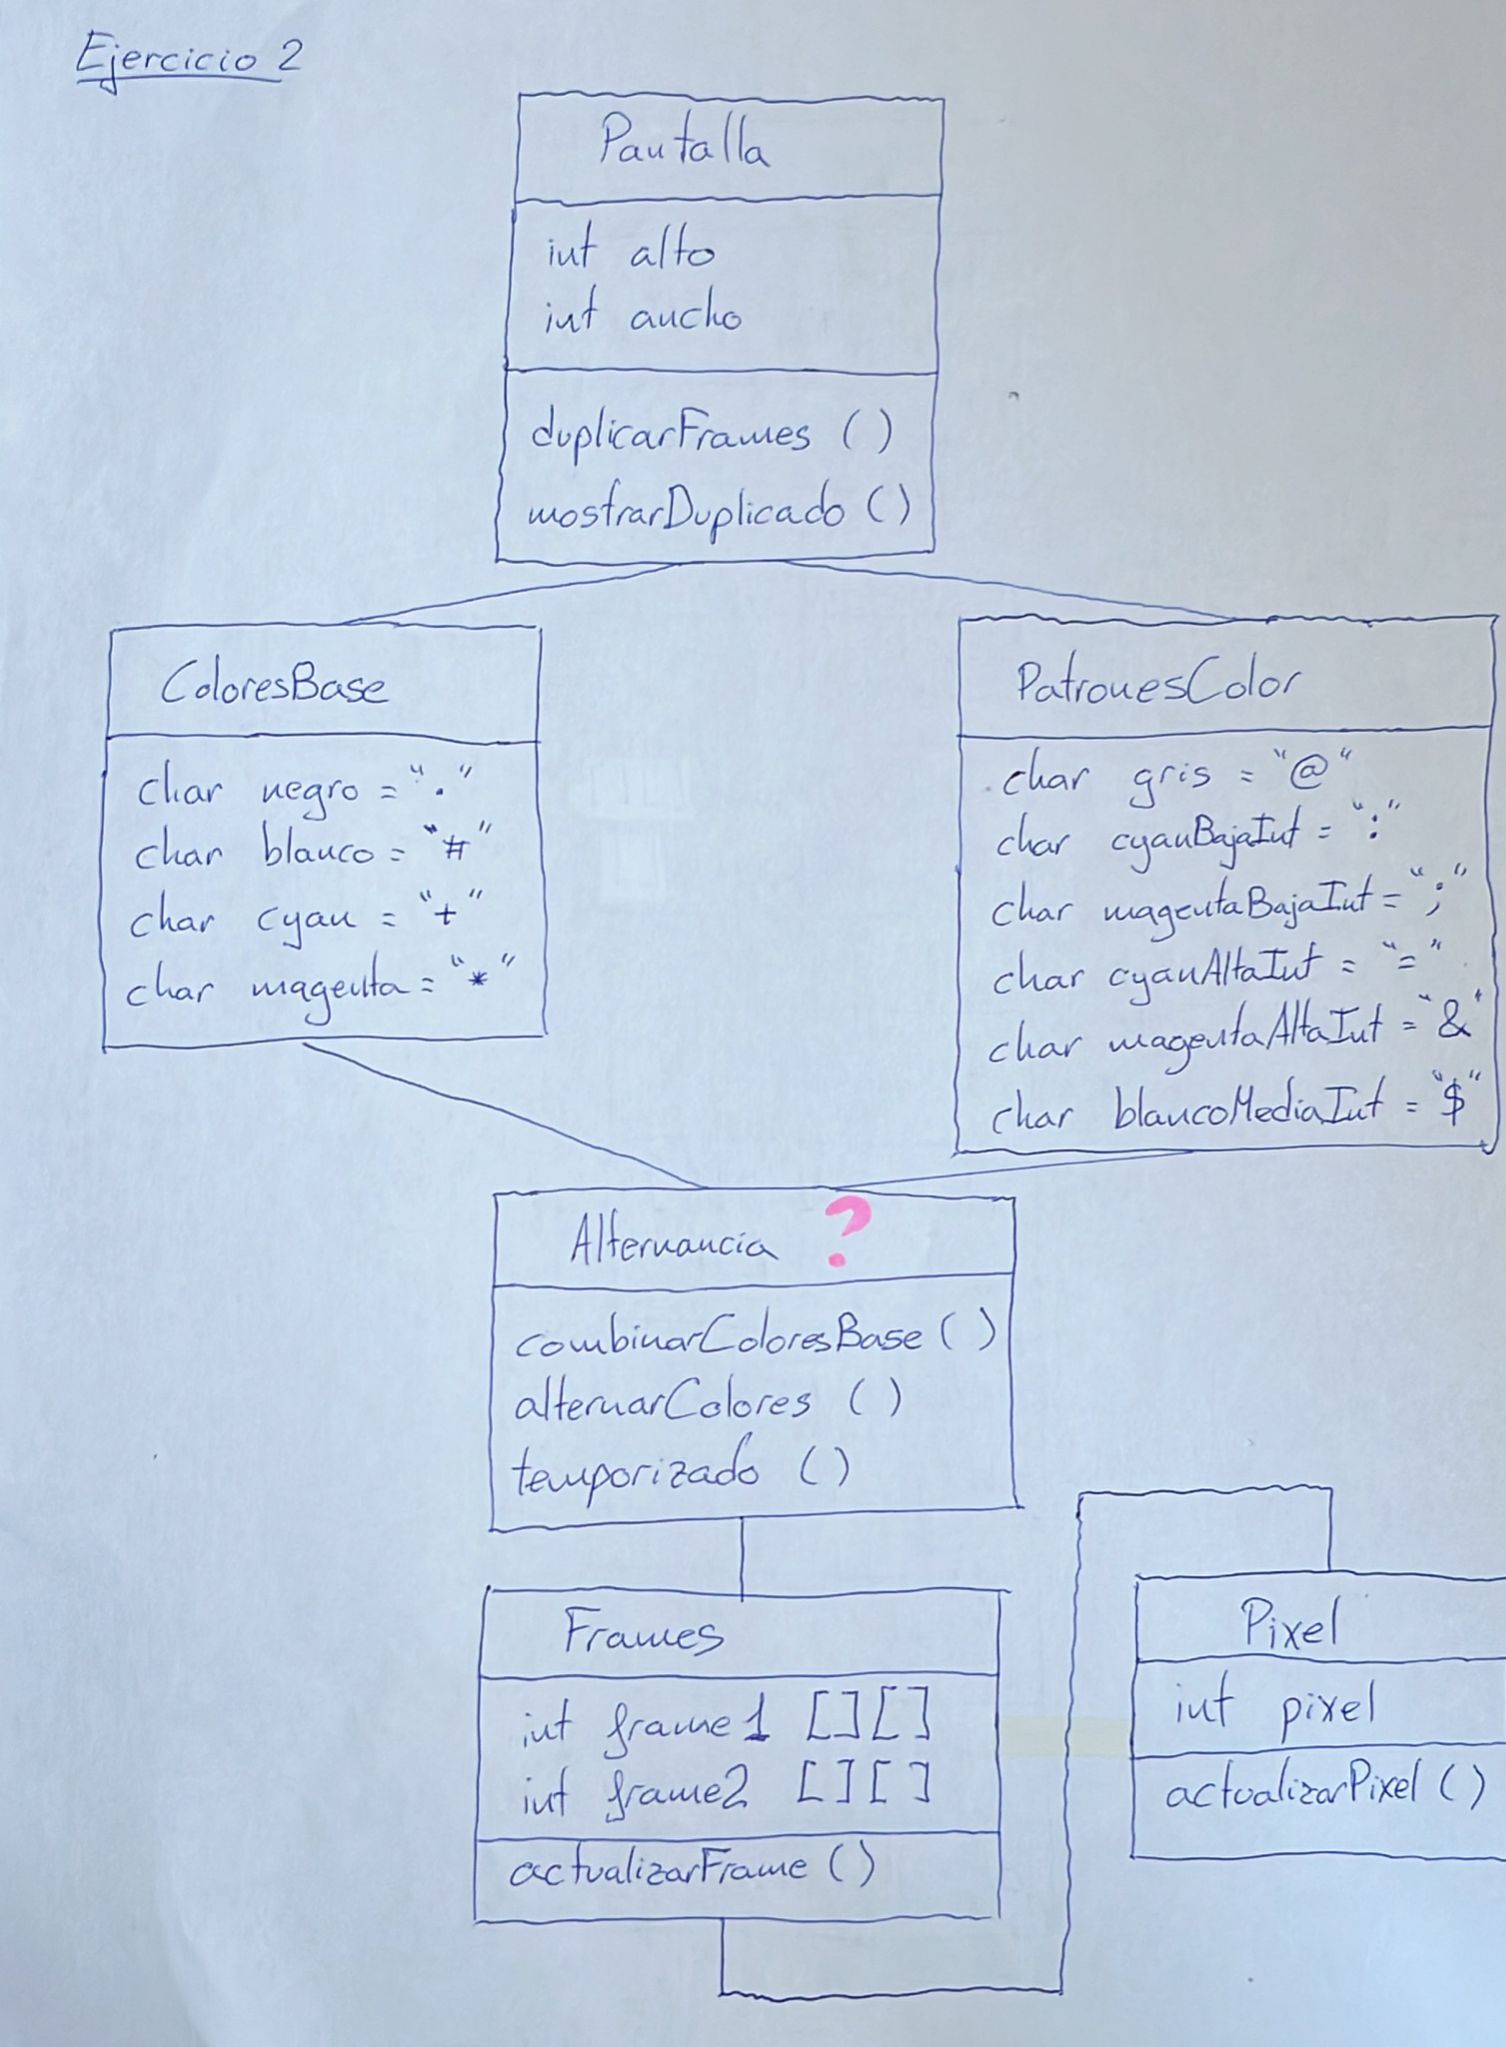 Ejercicio 2
Pantalla
int alto
int ancho
duplicarFrames ()
mostrarDuplicado ()
ColoresBase
char negro = "."
char blanco = "#"
char cyan = "+"
char magenta = "*"
PatronesColor
char gris = "@"
char cyanBajaInt = ":"
char magentaBajaInt = ";"
char cyanAltaInt = "="
char magentaAltaInt = "&"
char blancoMediaInt = "$"
Alternancia ?
combinarColoresBase ()
alternarColores ()
temporizado ()
Frames
int frame1 [][]
int frame2 [][]
actualizarFrame ()
Pixel
int pixel
actualizarPixel ()